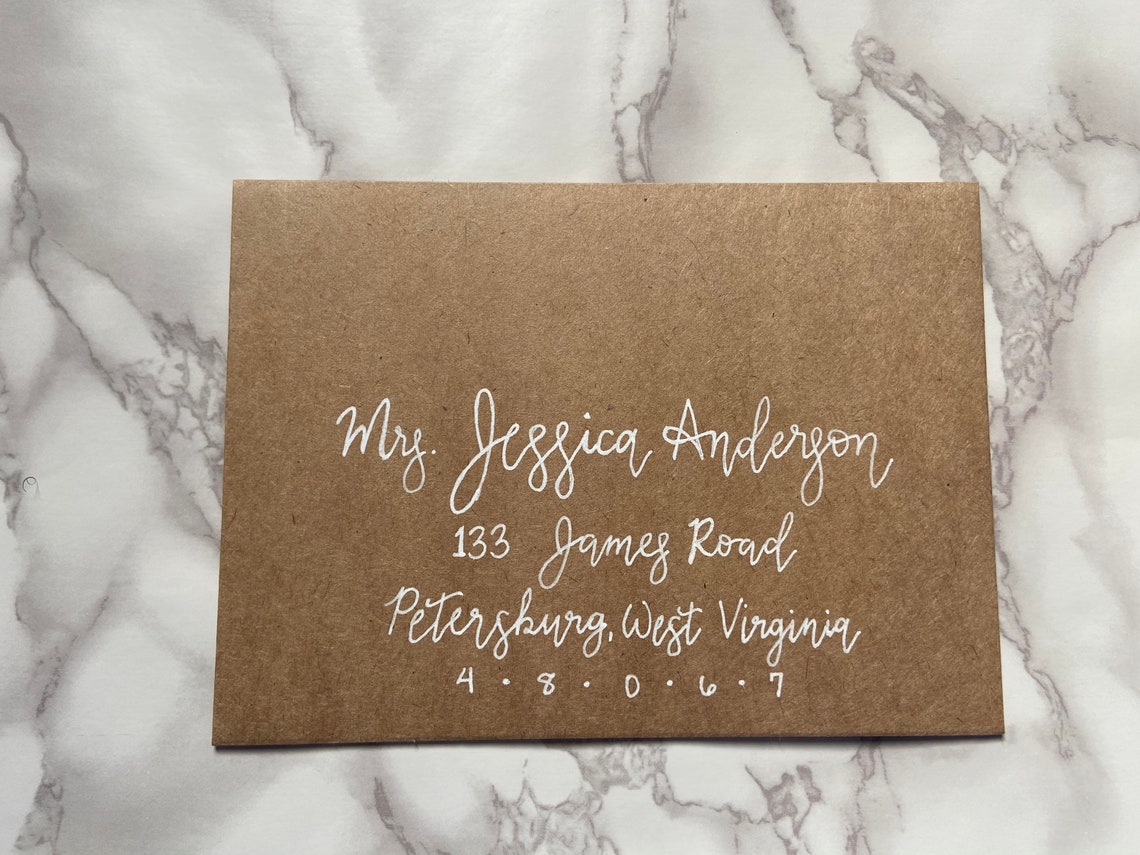 Mrs. Jessica Anderson
133 James Road
Petersburg, West Virginia
4 · 8 · 0 · 6 · 7